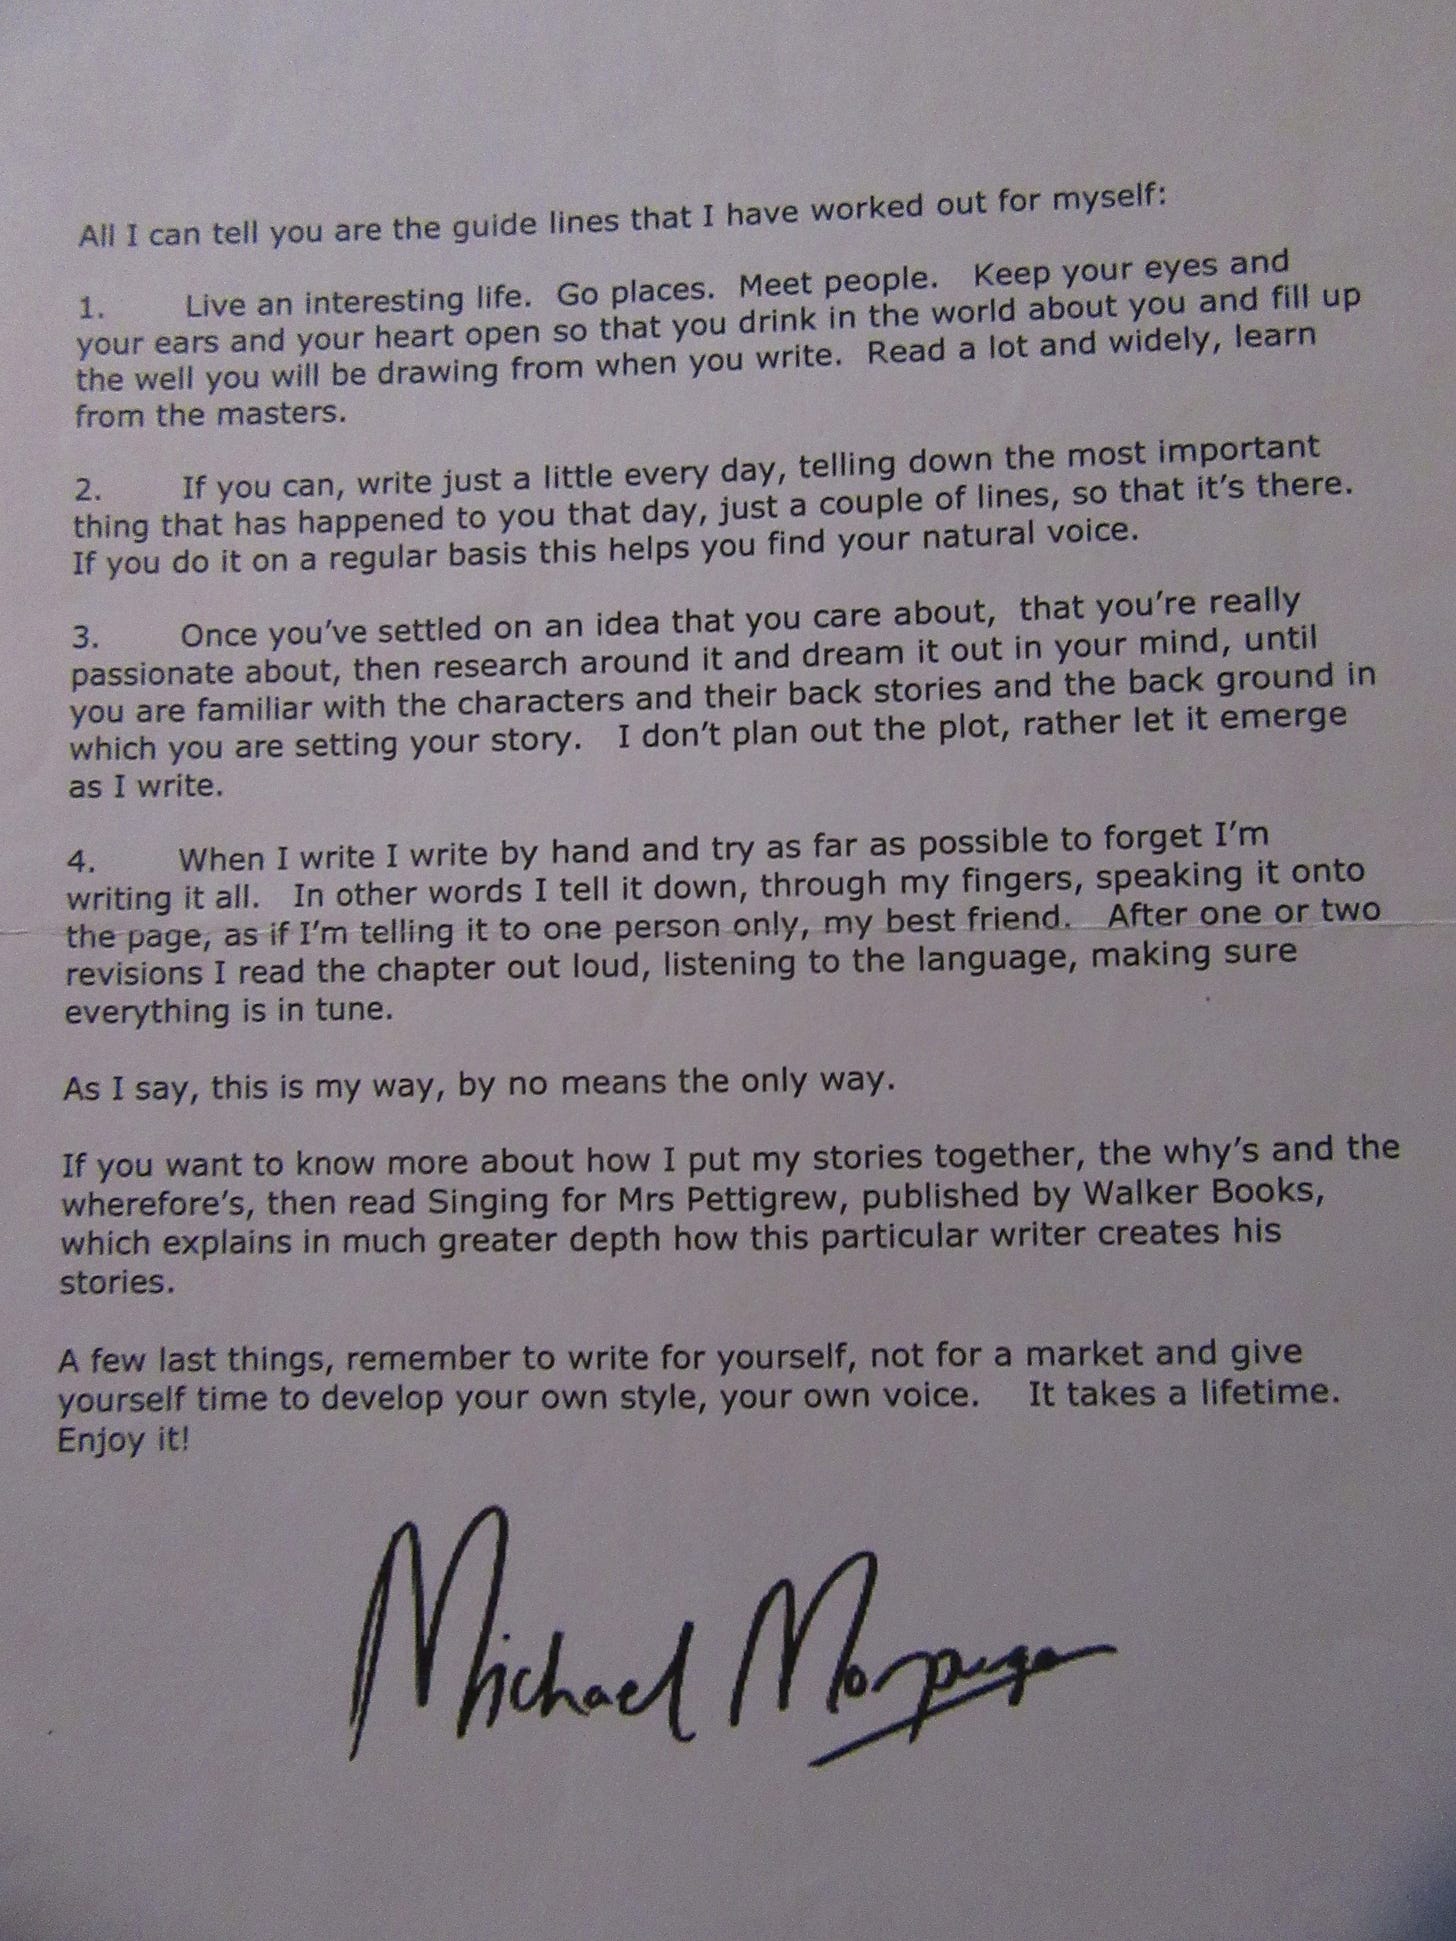 All I can tell you are the guide lines that I have worked out for myself:
1. Live an interesting life. Go places. Meet people. Keep your eyes and
your ears and your heart open so that you drink in the world about you and fill up
the well you will be drawing from when you write. Read a lot and widely, learn
from the masters.
2. If you can, write just a little every day, telling down the most important
thing that has happened to you that day, just a couple of lines, so that it's there.
If you do it on a regular basis this helps you find your natural voice.
3. Once you've settled on an idea that you care about, that you're really
passionate about, then research around it and dream it out in your mind, until
you are familiar with the characters and their back stories and the back ground in
which you are setting your story. I don't plan out the plot, rather let it emerge
as I write.
4. When I write I write by hand and try as far as possible to forget I'm
writing it all. In other words I tell it down, through my fingers, speaking it onto
the page, as if I'm telling it to one person only, my best friend. After one or two
revisions I read the chapter out loud, listening to the language, making sure
everything is in tune.
As I say, this is my way, by no means the only way.
If you want to know more about how I put my stories together, the why's and the
wherefore's, then read Singing for Mrs Pettigrew, published by Walker Books,
which explains in much greater depth how this particular writer creates his
stories.
A few last things, remember to write for yourself, not for a market and give
yourself time to develop your own style, your own voice. It takes a lifetime.
Enjoy it!
Michael Morpurgo